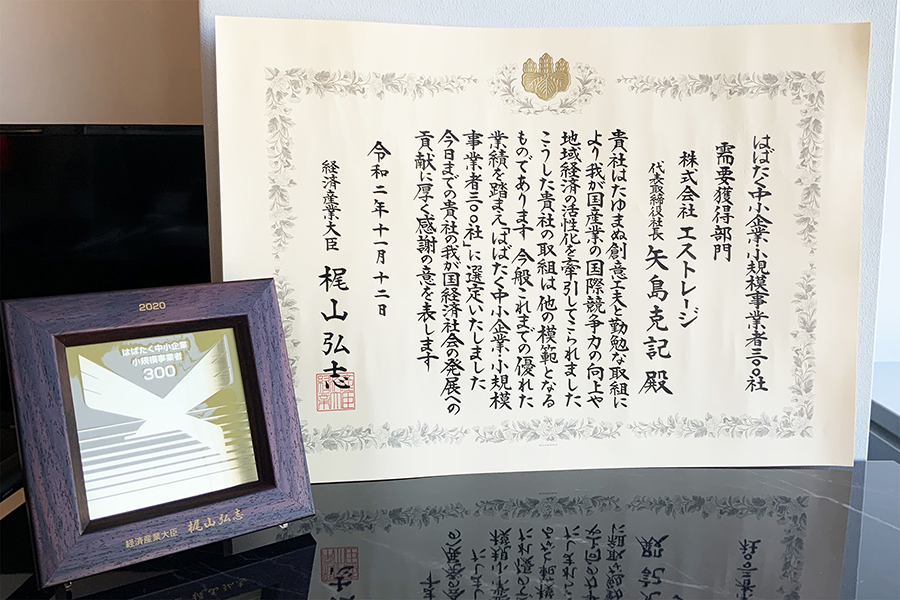 はばたく中小企業・小規模事業者三〇〇社
需要獲得部門
株式会社 エストレージ
代表取締役社長 矢島克記 殿
貴社はたゆまぬ創意工夫と勤勉な取組に
より我が国産業の国際競争力の向上や
地域経済の活性化を牽引してこられました
こうした貴社の取組は他の模範となる
ものであります 今般これまでの優れた
業績を踏まえ「はばたく中小企業・小規模
事業者三〇〇社」に選定いたしました
今日までの貴社の我が国経済社会の発展への
貢献に厚く感謝の意を表します
令和二年十一月十二日
経済産業大臣 梶山弘志
2020
はばたく中小企業
小規模事業者
300
経済産業大臣 梶山弘志